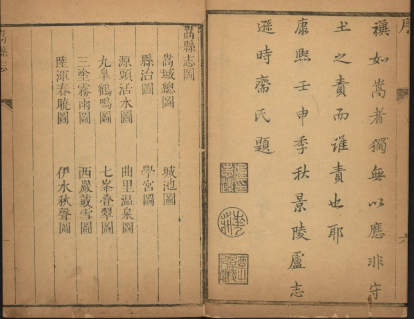 序
六
如嵩者獨無以應非守
土之責而誰責也耶
康熙壬申季秋景陵盧志
遜時齋氏題
嵩縣志圖
嵩域總圖 城池圖
縣治圖 學宮圖
源頭活水圖 曲里温泉圖
九臯鶴鳴圖 七峯叠翠圖
三塗霧雨圖 西巖戴雪圖
陸渾春曉圖 伊水秋聲圖
嵩縣志